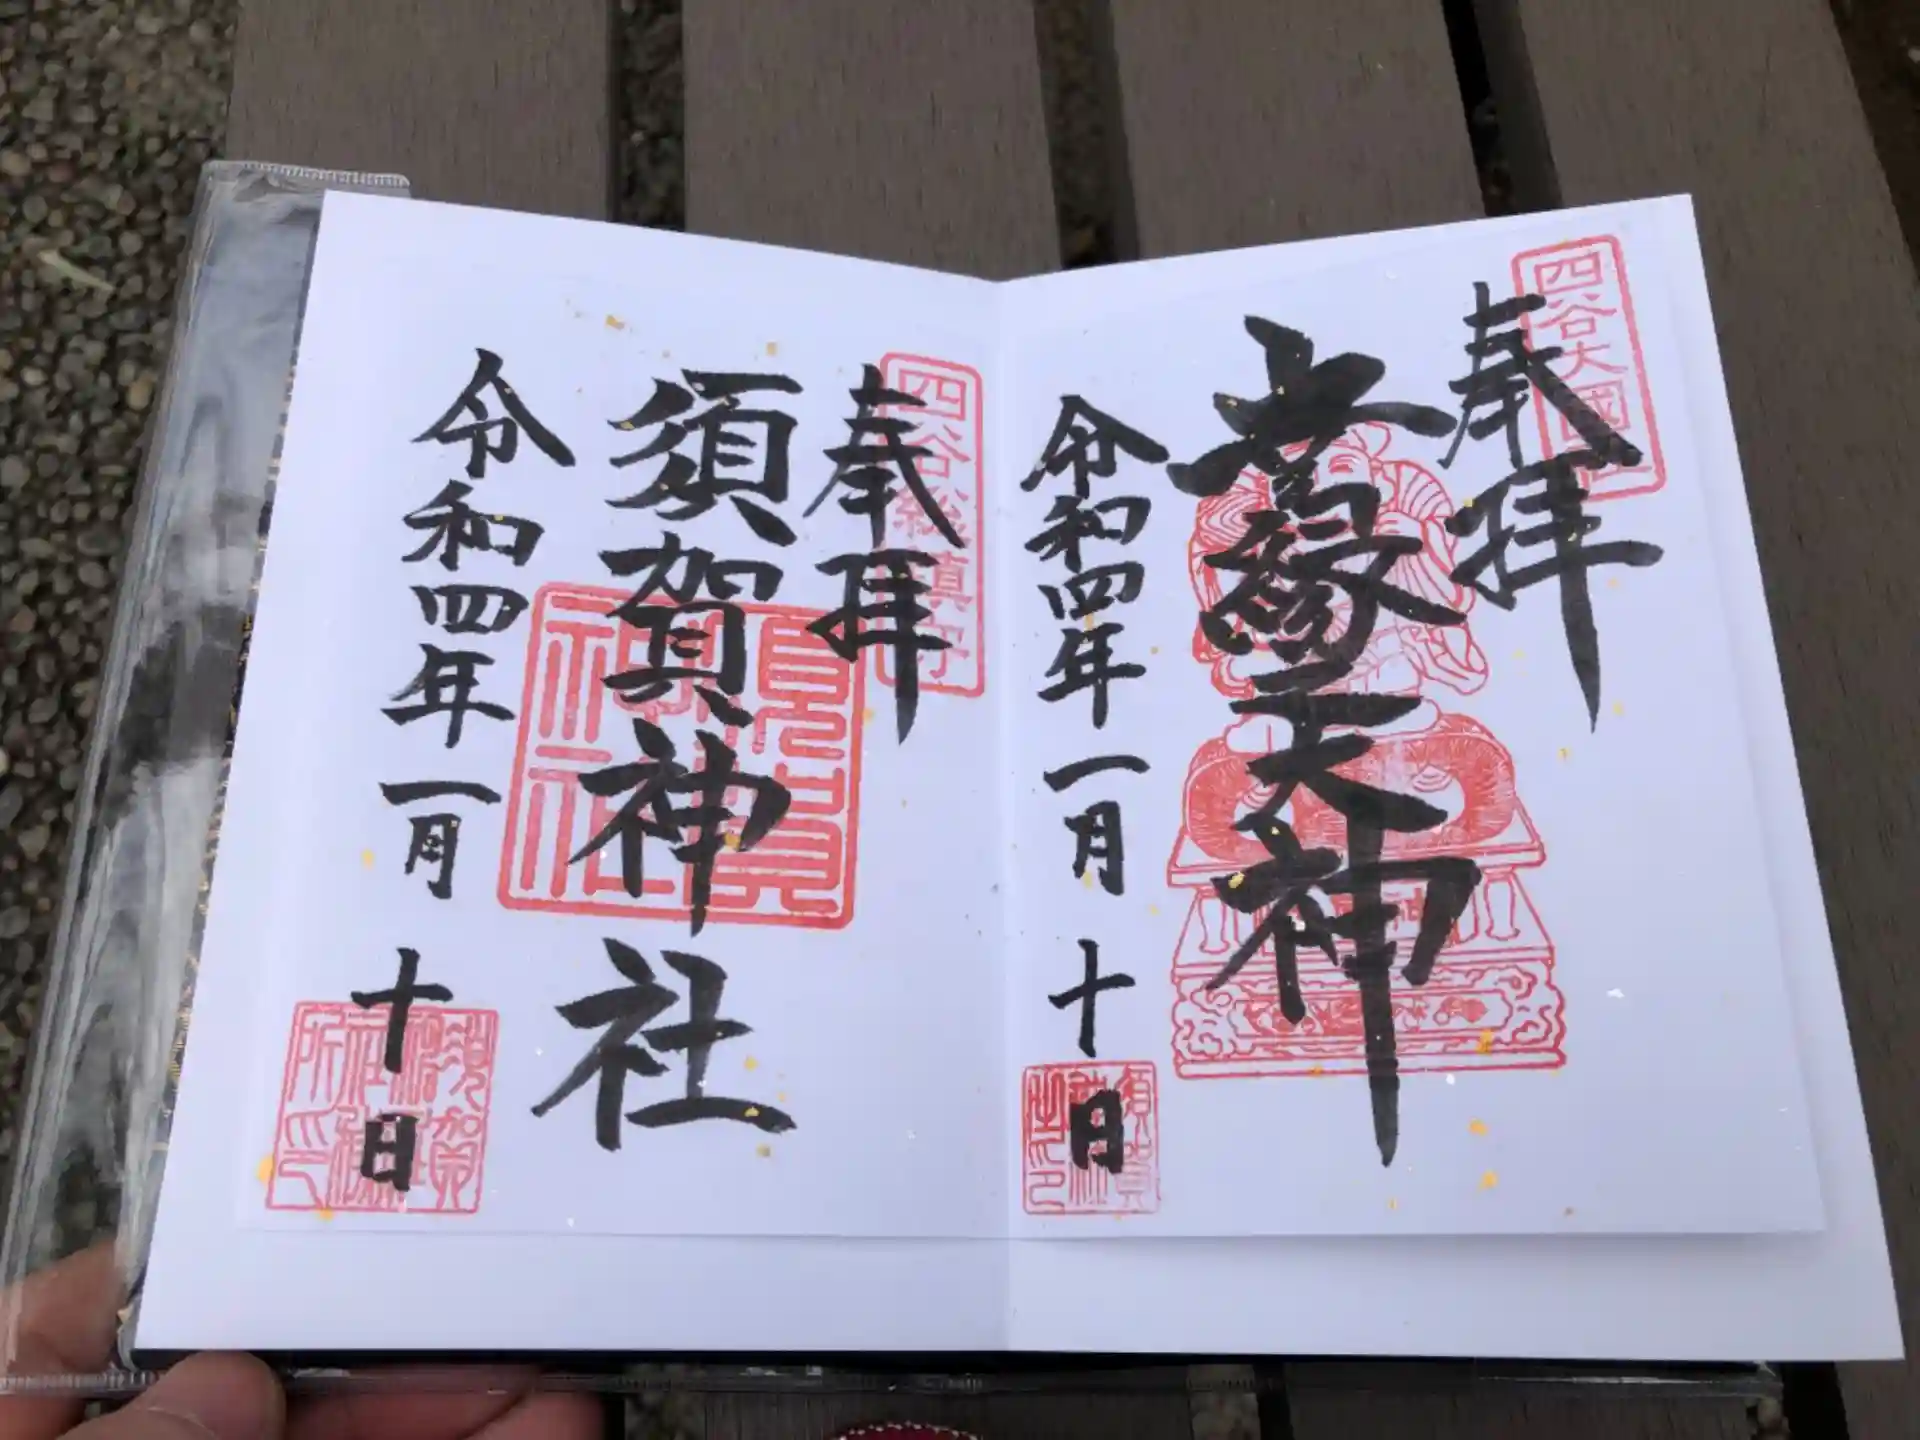 四谷大國
奉拝
吉縁天神
令和四年一月十日
須賀神社
四谷総鎮守
奉拝
須賀神社
須賀神社
令和四年一月十日
須賀神社